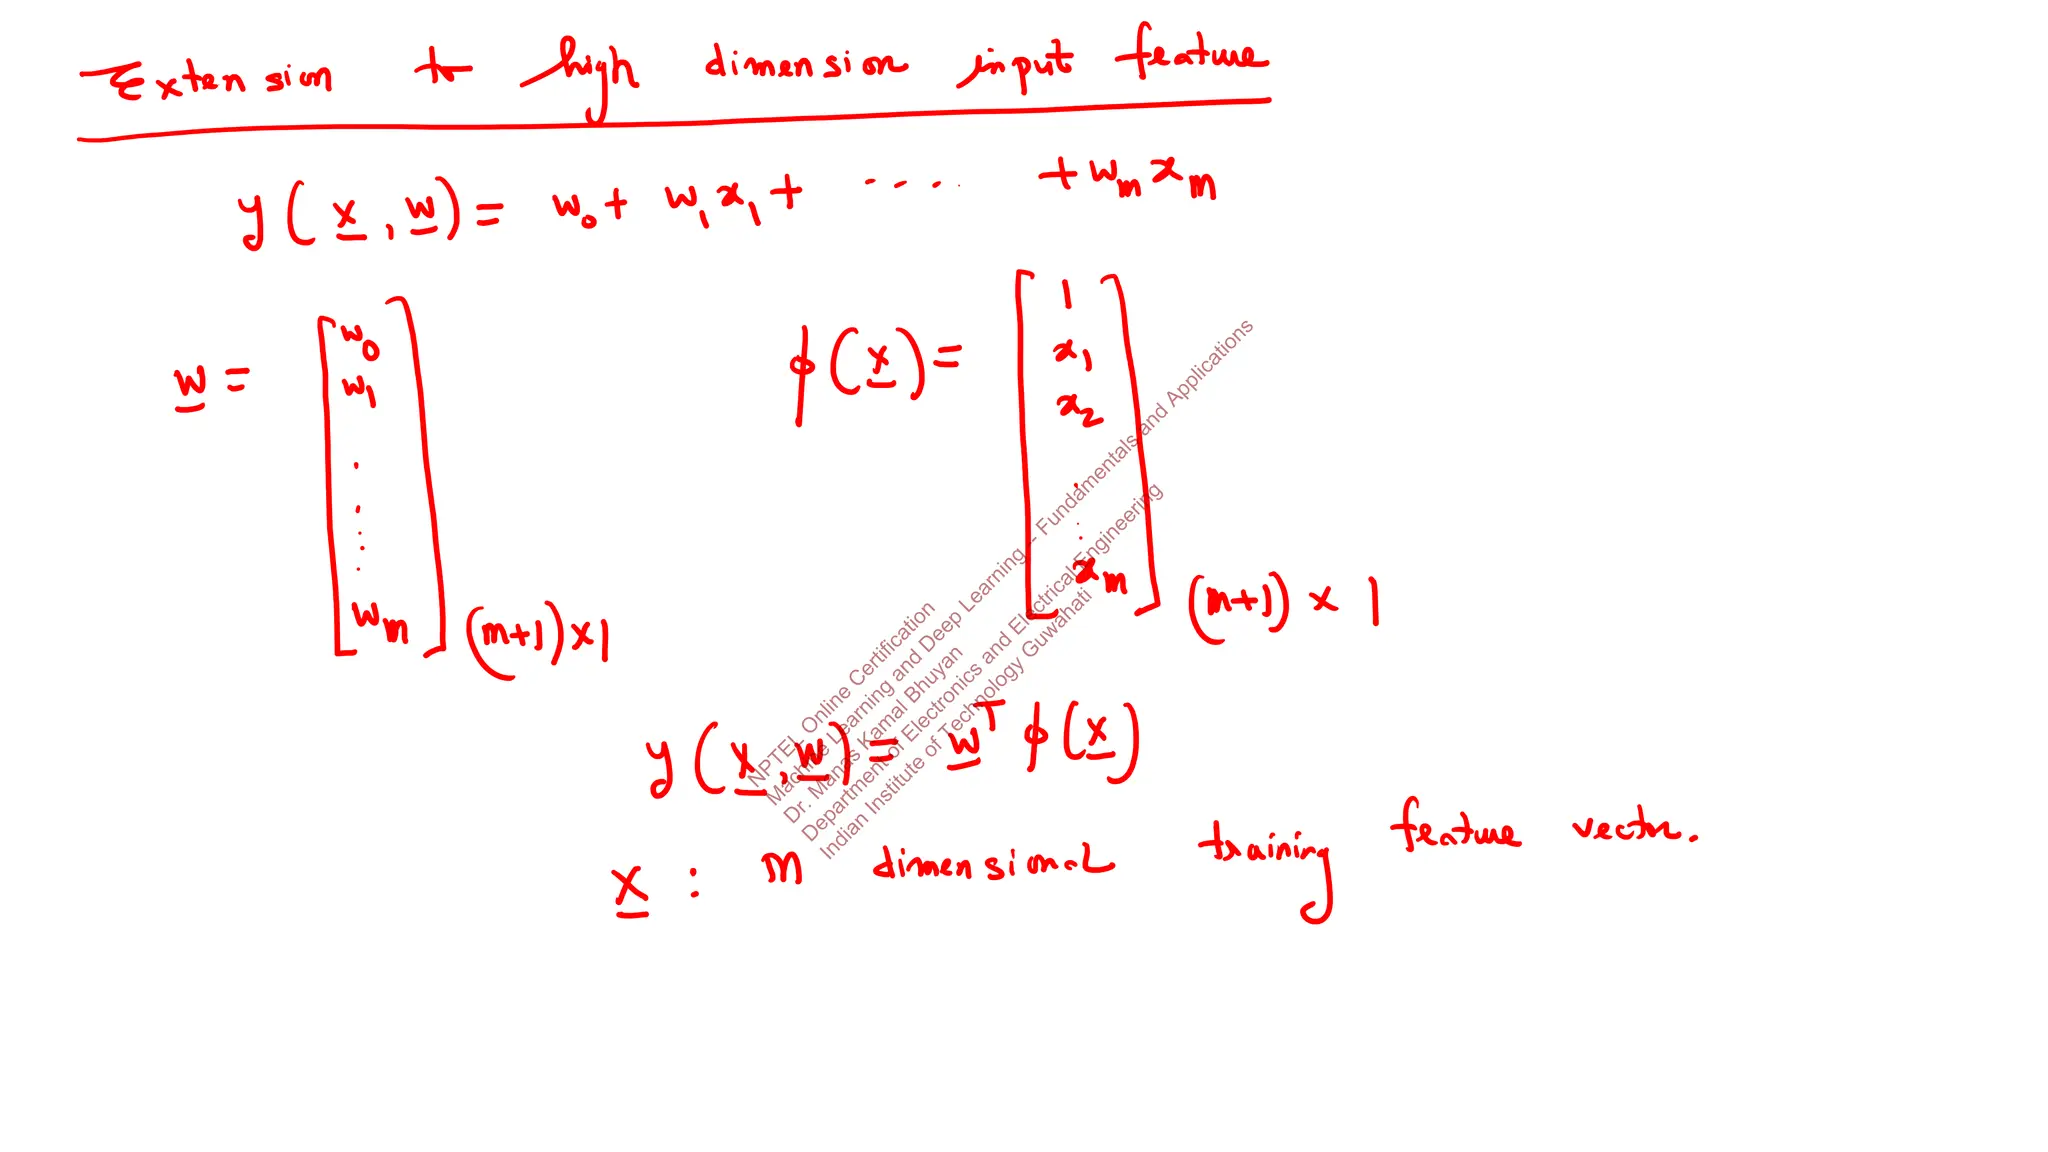 Extension to high dimension input feature
y(x, w) = w₀ + w₁x₁ + .... + wₘxₘ
w = [w₀ w₁ . . . . . wₘ] (m+1)×1
ϕ(x) = [1 x₁ x₂ . . . xₘ] (m+1) × 1
y(x, w) = wᵀ ϕ(x)
x : m dimensional training feature vector.
NPTEL Online Certification
Machine Learning and Deep Learning - Fundamentals and Applications
Dr. Manas Kamal Bhuyan
Department of Electronics and Electrical Engineering
Indian Institute of Technology Guwahati